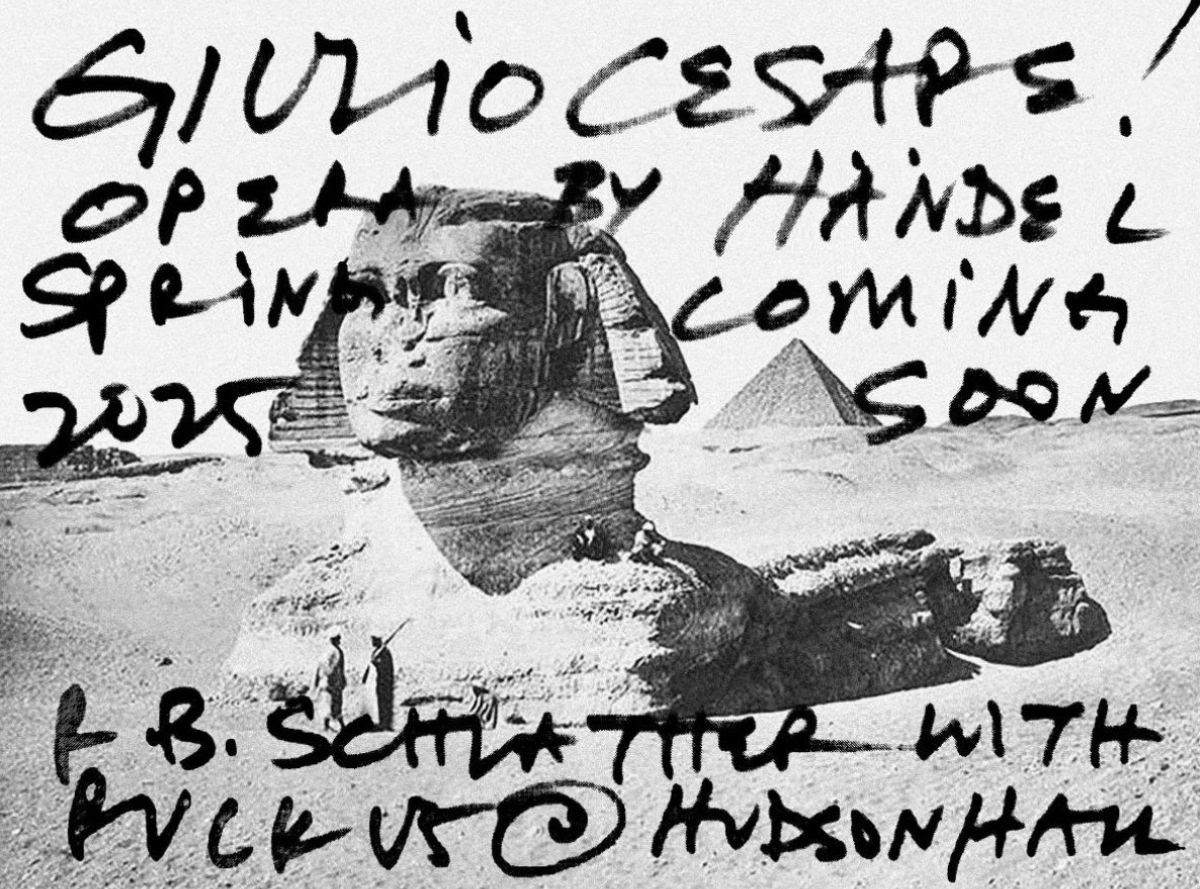 GIULIO CESARE!
OPERA BY HÄNDEL
SPRING COMING
2025 SOON
R.B. SCHLATHER WITH
RUCKUS @ HUDSON HALL